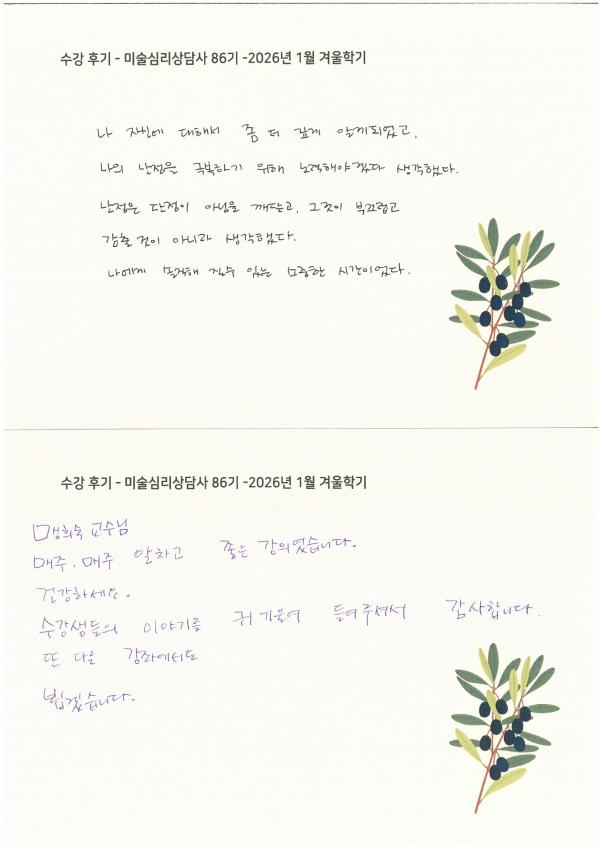 수강 후기 – 미술심리상담사 86기 -2026년 1월 겨울학기
나 자신에 대해서 좀 더 깊게 알게되었고,
나의 단점을 극복하기 위해 노력해야겠다 생각했다.
단점은 단점이 아님을 깨닫고, 그것이 부끄럽고
감출 것이 아니라 생각했다.
나에게 솔직해 질수 있는 소중한 시간이었다.
수강 후기 – 미술심리상담사 86기 -2026년 1월 겨울학기
맹희숙 교수님
매주. 매주 알차고 좋은 강의였습니다.
건강하세요.
수강생들의 이야기를 귀 기울여 들어주셔서 감사합니다.
또 다른 강좌에서도
뵙겠습니다.